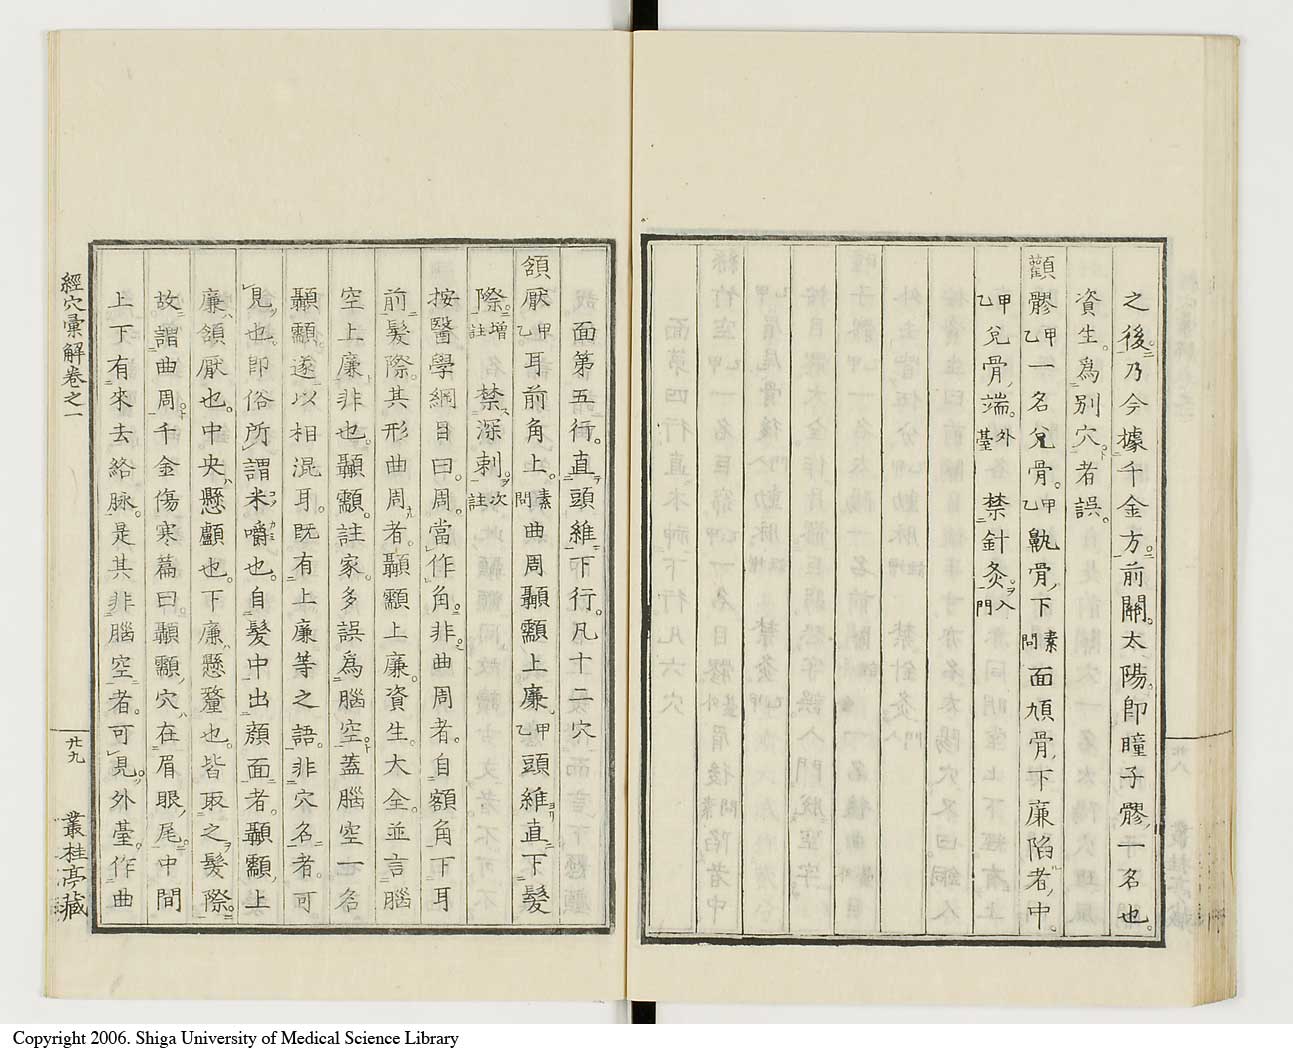 之後乃今據千金方前關太陽即瞳子髎一名也
資生爲別穴者誤
顴髎甲乙一名兌骨甲乙䪼骨下素問面頄骨下廉陷者中
甲乙兌骨端外臺 禁針灸入門
面第五行直頭維下行凡十二穴
頷厭甲乙耳前角上素問曲周顳顬上廉甲乙頭維直下髮
際增註 禁深刺次註
按醫學綱目曰周當作角非曲周者自額角下耳
前髮際其形曲周者顳顬上廉資生大全並言腦
空上廉非也顳顬註家多誤爲腦空蓋腦空一名
顳顬遂以相混耳既有上廉等之語非穴名者可
見也即俗所謂米嚼也自髮中出顏面者顳顬上
廉頷厭也中央懸顱也下廉懸釐也皆取之髮際
故謂曲周千金傷寒篇曰顳顬穴在眉眼尾中間
上下有來去絡脈是其非腦空者可見外臺作曲
經穴彙解卷之一
廿九
叢桂亭藏
Copyright 2006. Shiga University of Medical Science Library